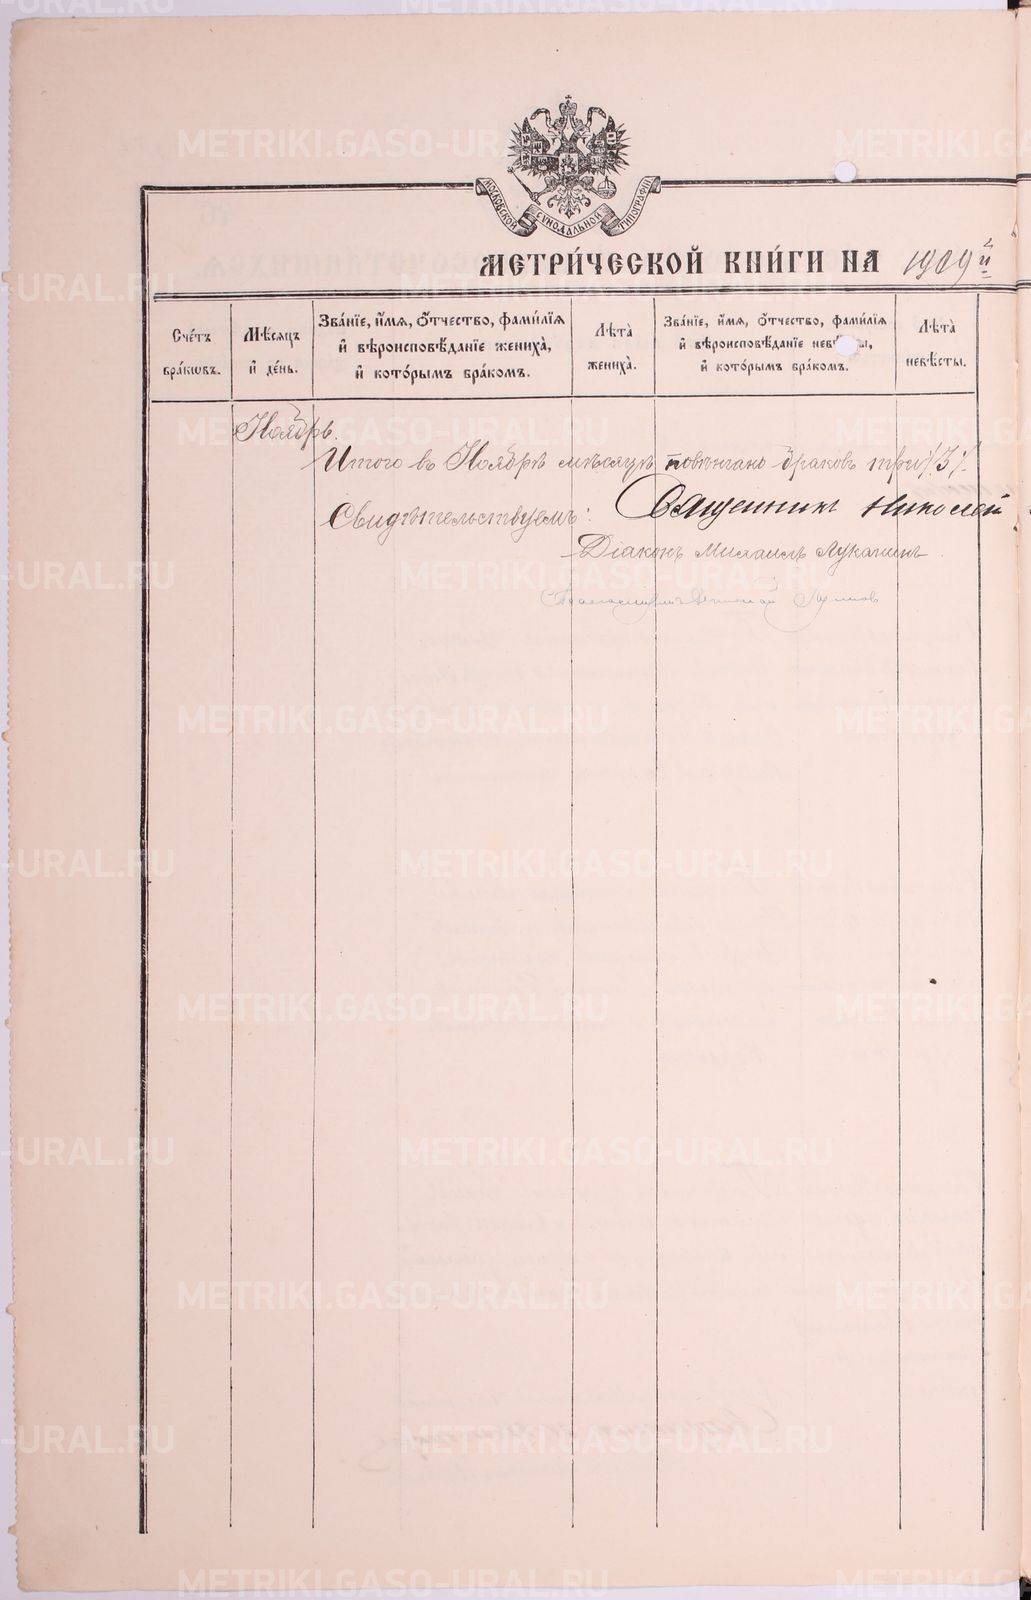 МОСКОВСКОЙ СУНОДАЛЬНОЙ ТИПОГРАФІИ
МЕТРИ́ЧЕСКОЙ КНИ́ГИ НА 1909 й
Сче́тъ бра́кωвъ.
Мѣ́сяцъ и҆ де́нь.
Зва́нїе, и҆́мѧ, ѻ҆́тчество, фами́лїѧ и҆ вѣроисповѣ́данїе жениха̀, и҆ кото́рымъ бра́комъ.
Лѣта̀ жениха̀.
Зва́нїе, и҆́мѧ, ѻ҆́тчество, фами́лїѧ и҆ вѣроисповѣ́данїе невѣ́сты, и҆ кото́рымъ бра́комъ.
Лѣта̀ невѣ́сты.
Ноябрь.
Итого въ Ноябрѣ мѣсяцѣ повѣнчано браковъ три /3/.
Свидѣтельствуемъ: Священник Николай
Діаконъ Михаилъ Лукашинъ.
METRIKI.GASO-URAL.RU